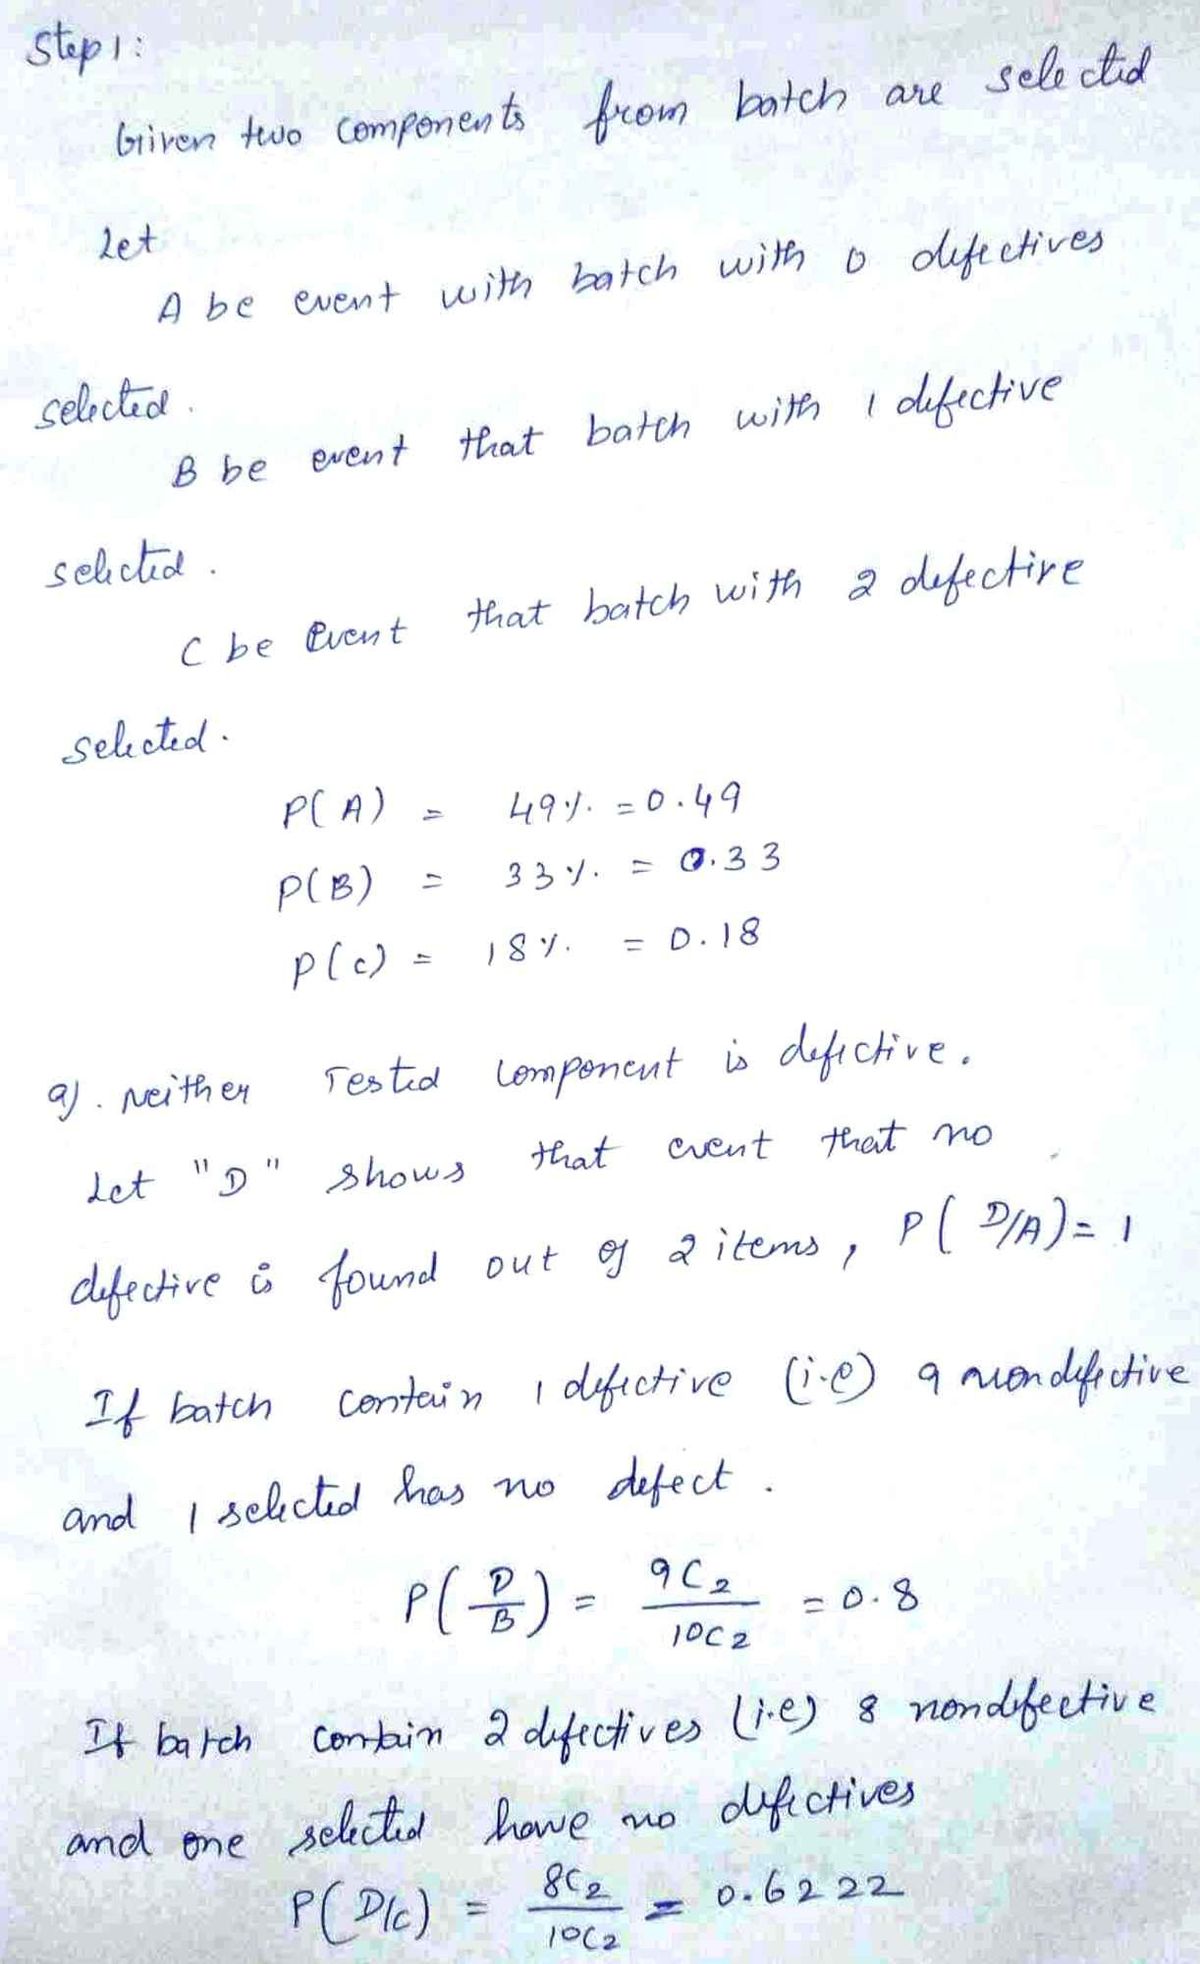 Step 1:
Given two components from batch are selected
Let
A be event with batch with 0 defectives
selected.
B be event that batch with 1 defective
selected.
C be event that batch with 2 defective
selected.
P(A) = 49%. = 0.49
P(B) = 33%. = 0.33
P(C) = 18%. = 0.18
a). Neither Tested Component is defective.
Let "D" shows that event that no
defective is found out of 2 items, P(D/A) = 1
If batch contain 1 defective (i.e) 9 nondefective
and 1 selected has no defect.
P(D/B) = 9C2/10C2 = 0.8
If batch contain 2 defectives (i.e) 8 nondefective
and one selected have no defectives
P(D/C) = 8C2/10C2 = 0.6222